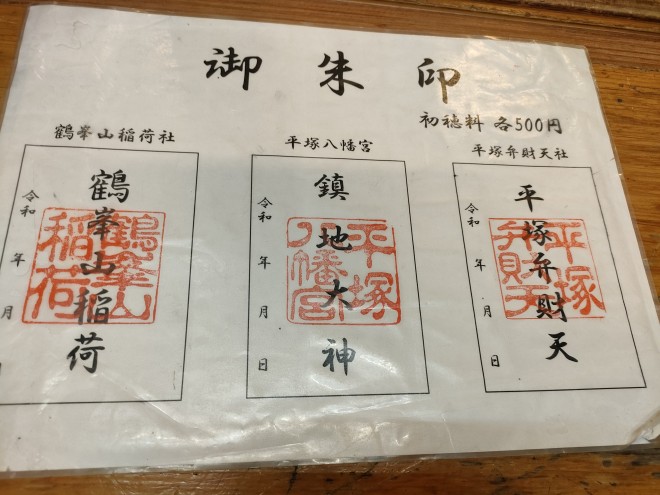 御朱印
初穂料 各500円
鶴峯山稲荷社
鶴峯山稲荷
令和
年
月
鶴峯山
稲荷
平塚八幡宮
鎮地大神
令和
年
月
日
平塚
八幡宮
平塚弁財天社
平塚弁財天
令和
年
月
日
平塚
弁財天